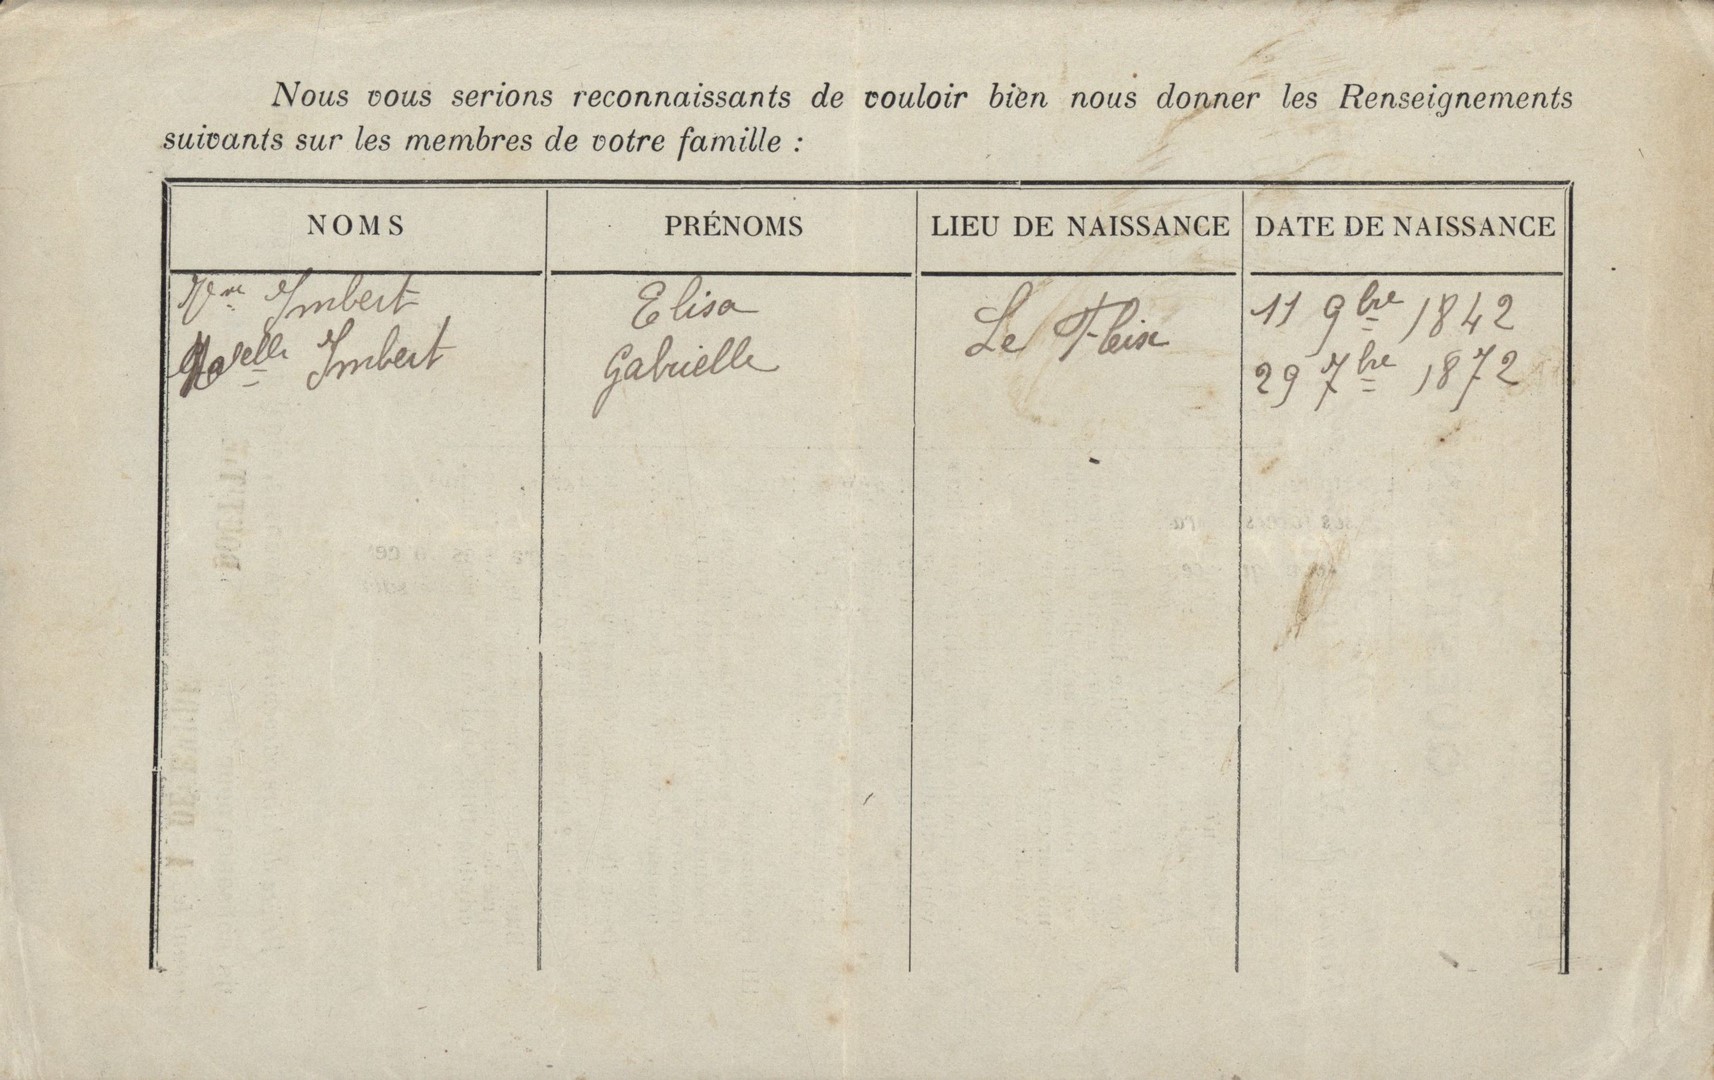 Nous vous serions reconnaissants de vouloir bien nous donner les Renseignements
suivants sur les membres de votre famille :
NOMS PRÉNOMS LIEU DE NAISSANCE DATE DE NAISSANCE
Vve Imbert Elisa Le Fleix 11 9bre 1842
Melle Imbert Gabrielle 29 7bre 1872